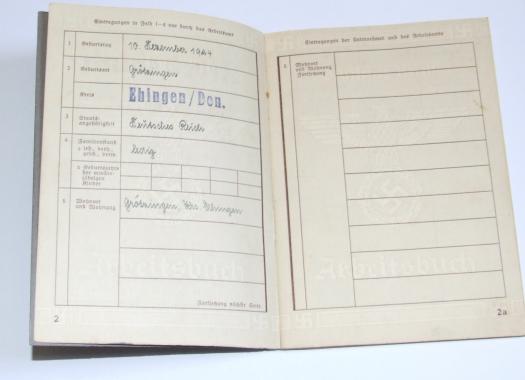 Eintragungen in Feld 1–6 nur durch das Arbeitsamt
1 Geburtstag 10. Dezember 1924
2 Geburtsort Grötzingen
Kreis Ehingen/Don.
3 Staats-
angehörigkeit Deutsches Reich
4 Familienstand
led., verh.,
gesch., verw. ledig
a Geburtsjahre
der minder-
jährigen
Kinder
5 Wohnort
und Wohnung Grötzingen, Krs. Ehingen
Arbeitsbuch
Fortsetzung nächste Seite
2
Eintragungen der Unternehmer und des Arbeitsamts
5 Wohnort
und Wohnung
Fortsetzung
Arbeitsbuch
2a